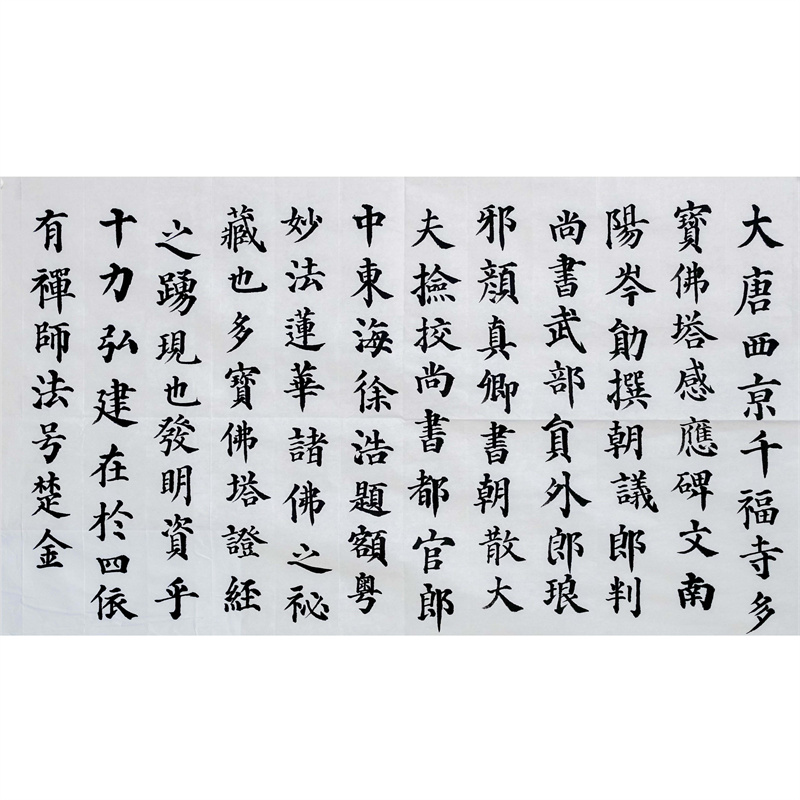 大唐西京千福寺多
寶佛塔感應碑文南
陽岑勛撰朝議郎判
尚書武部員外郎琅
邪顏真卿書朝散大
夫撿挍尚書都官郎
中東海徐浩題額粵
妙法蓮華諸佛之祕
藏也多寶佛塔證経
之踴現也發明資乎
十力弘建在於四依
有禪師法号楚金